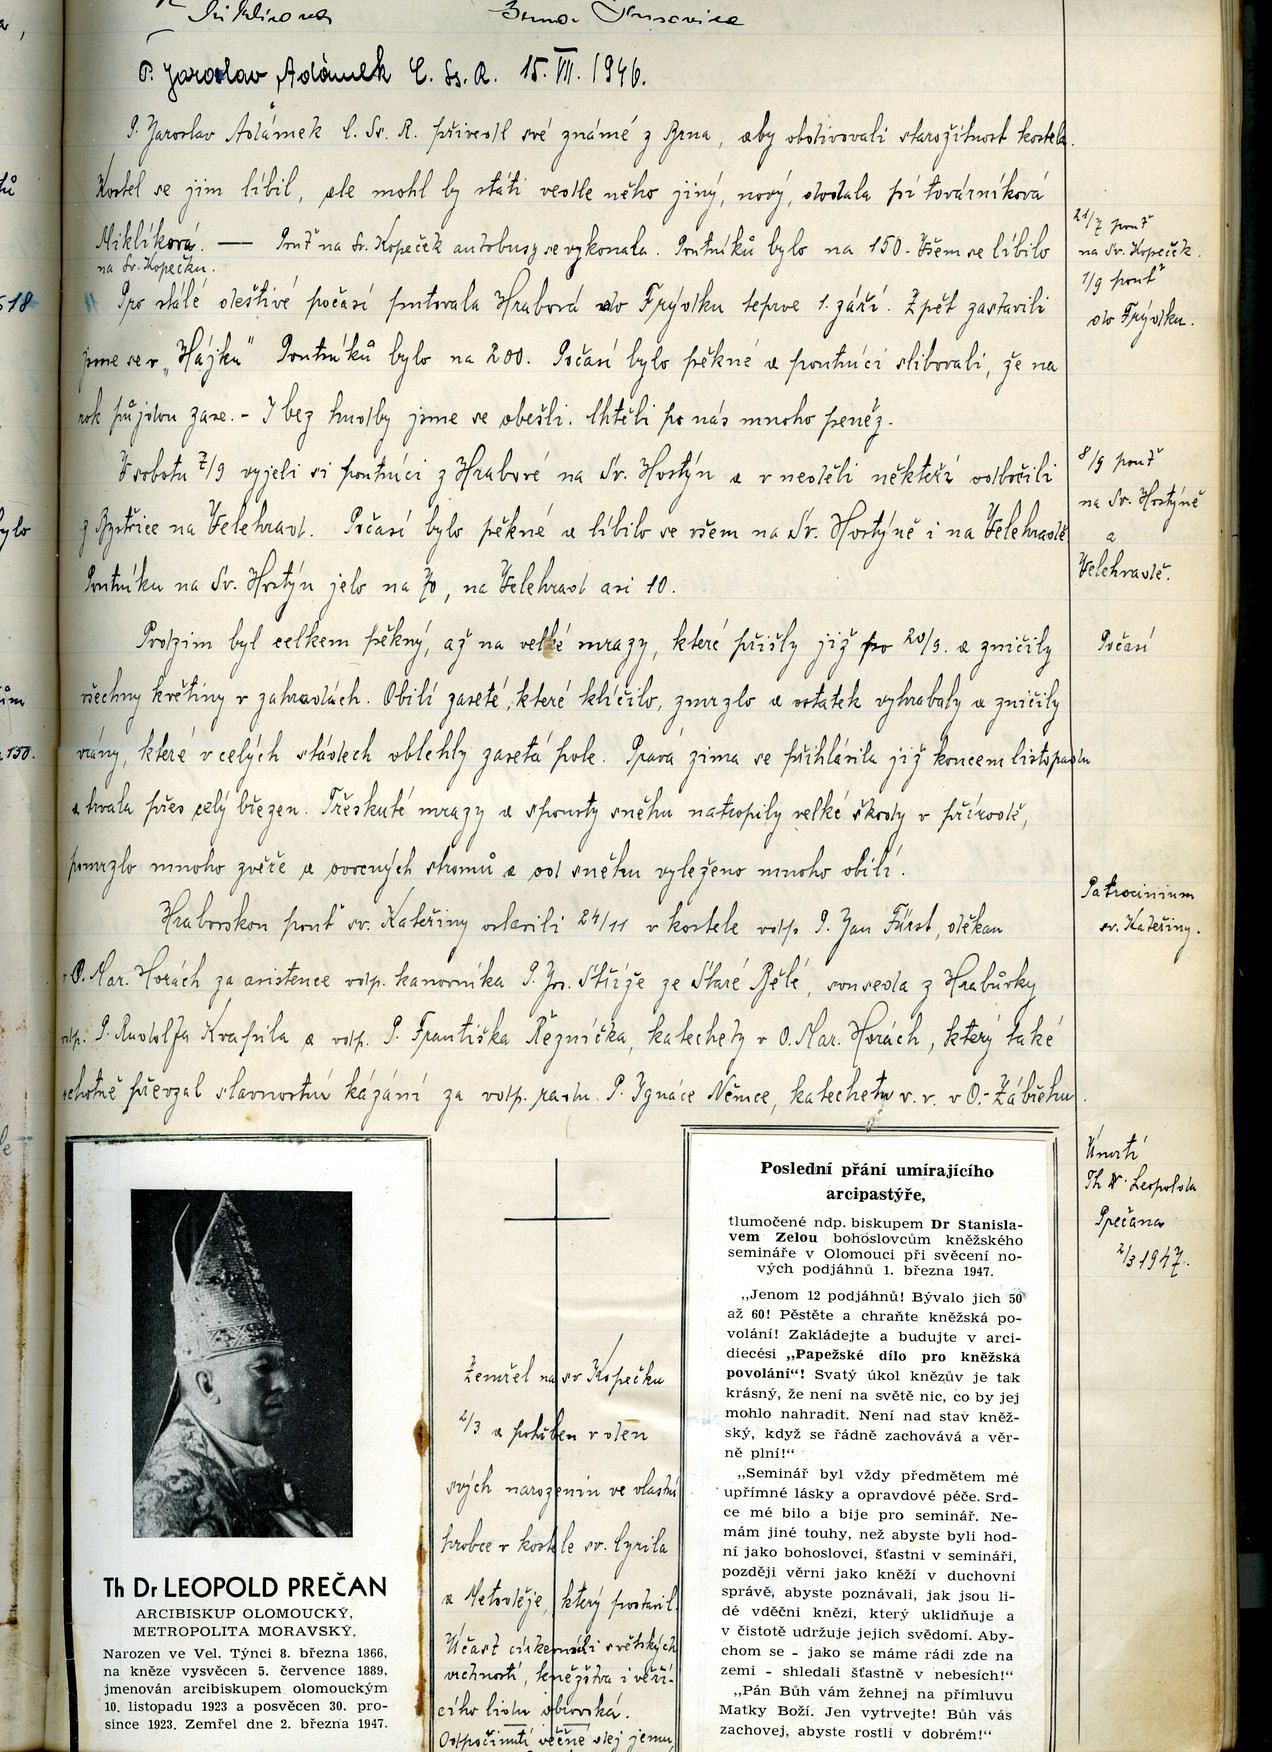 P. Jaroslav Adámek C. Ss. R. 15. VII. 1946.
P. Jaroslav Adámek C. Ss. R. přivedl své známé z Brna, aby obdivovali starožitnost kostela.
Kostel se jim líbil, ale mohl by státi vedle něho jiný, nový, dodala pí továrníková
Miklíková. — Pouť na Sv. Kopeček autobusy se vykonala. Poutníků bylo na 150. Všem se líbilo
na Sv. Kopečku.
21/7 pouť
na Sv. Kopeček.
Pro stálé deštivé počasí putovala Hrabová do Frýdku teprve 1. září. Zpět zastavili
1/9 pouť
do Frýdku.
jsme se v „Hájku“ Poutníků bylo na 200. Počasí bylo pěkné a poutníci slibovali, že na
rok půjdou zase. - I bez hudby jsme se obešli. Chtěli po nás mnoho peněz.
V sobotu 7/9 vyjeli si poutníci z Hrabové na Sv. Hostýn a v neděli někteří odbočili
8/9 pouť
na Sv. Hostýně
a
Velehradě.
z Bystřice na Velehrad. Počasí bylo pěkné a líbilo se všem na Sv. Hostýně i na Velehradě
Poutníku na Sv. Hostýn jelo na 70, na Velehrad asi 10.
Podzim byl celkem pěkný, až na velké mrazy, které přišly již po 20/9. a zničily
Počasí
všechny květiny v zahradách. Obilí zaseté, které klíčilo, zmrzlo a ostatek vyhrabaly a zničily
vrány, které v celých stádech oblehly zasetá pole. Pravá zima se přihlásila již koncem listopadu
a trvala přes celý březen. Třeskuté mrazy a spousty sněhu natropily velké škody v přírodě,
pomrzlo mnoho zvěře a ovocných stromů a od sněhu vyleženo mnoho obilí.
Hrabovskou pouť sv. Kateřiny oslavili 24/11 v kostele vdp. P. Jan Fürst, děkan
Patrocinium
sv. Kateřiny.
v O. Mar. Horách za asistence vdp. kanovníka P. Jos. Stříže ze Staré Bělé, souseda z Hrabůvky
vdp. P. Rudolfa Kvapila a vdp. P. Františka Řezníčka, katechety v O. Mar. Horách, který také
ochotně převzal slavnostní kázání za vdp. radu P. Ignáce Němce, katechetu v. v. v O.-Zábřehu.
Úmrtí
Th Dr. Leopolda
Prečana
2/3 1947.
Th Dr LEOPOLD PREČAN
ARCIBISKUP OLOMOUCKÝ,
METROPOLITA MORAVSKÝ.
Narozen ve Vel. Týnci 8. března 1866,
na kněze vysvěcen 5. července 1889,
jmenován arcibiskupem olomouckým
10. listopadu 1923 a posvěcen 30. pro-
since 1923. Zemřel dne 2. března 1947.
Zemřel na sv Kopečku
2/3 a pohřben v den
svých narozenin ve vlastní
hrobce v kostele sv. Cyrila
a Metoděje, který postavil.
Účast církevních i světských
vrchností, kněžstva i věří-
cího lidu obrovská.
Odpočinutí věčné dej jemu,
Poslední přání umírajícího
arcipastýře,
tlumočené ndp. biskupem Dr Stanisla-
vem Zelou bohoslovcům kněžského
semináře v Olomouci při svěcení no-
vých podjáhnů 1. března 1947.
„Jenom 12 podjáhnů! Bývalo jich 50
až 60! Pěstěte a chraňte kněžská po-
volání! Zakládejte a budujte v arci-
diecési „Papežské dílo pro kněžská
povolání“! Svatý úkol knězův je tak
krásný, že není na světě nic, co by jej
mohlo nahradit. Není nad stav kněž-
ský, když se řádně zachovává a věr-
ně plní!“
„Seminář byl vždy předmětem mé
upřímné lásky a opravdové péče. Srd-
ce mé bilo a bije pro seminář. Ne-
mám jiné touhy, než abyste byli hod-
ní jako bohoslovci, šťastni v semináři,
později věrní jako kněží v duchovní
správě, abyste poznávali, jak jsou li-
dé vděčni knězi, který uklidňuje a
v čistotě udržuje jejich svědomí. Aby-
chom se - jako se máme rádi zde na
zemi - shledali šťastně v nebesích!“
„Pán Bůh vám žehnej na přímluvu
Matky Boží. Jen vytrvejte! Bůh vás
zachovej, abyste rostli v dobrém!“